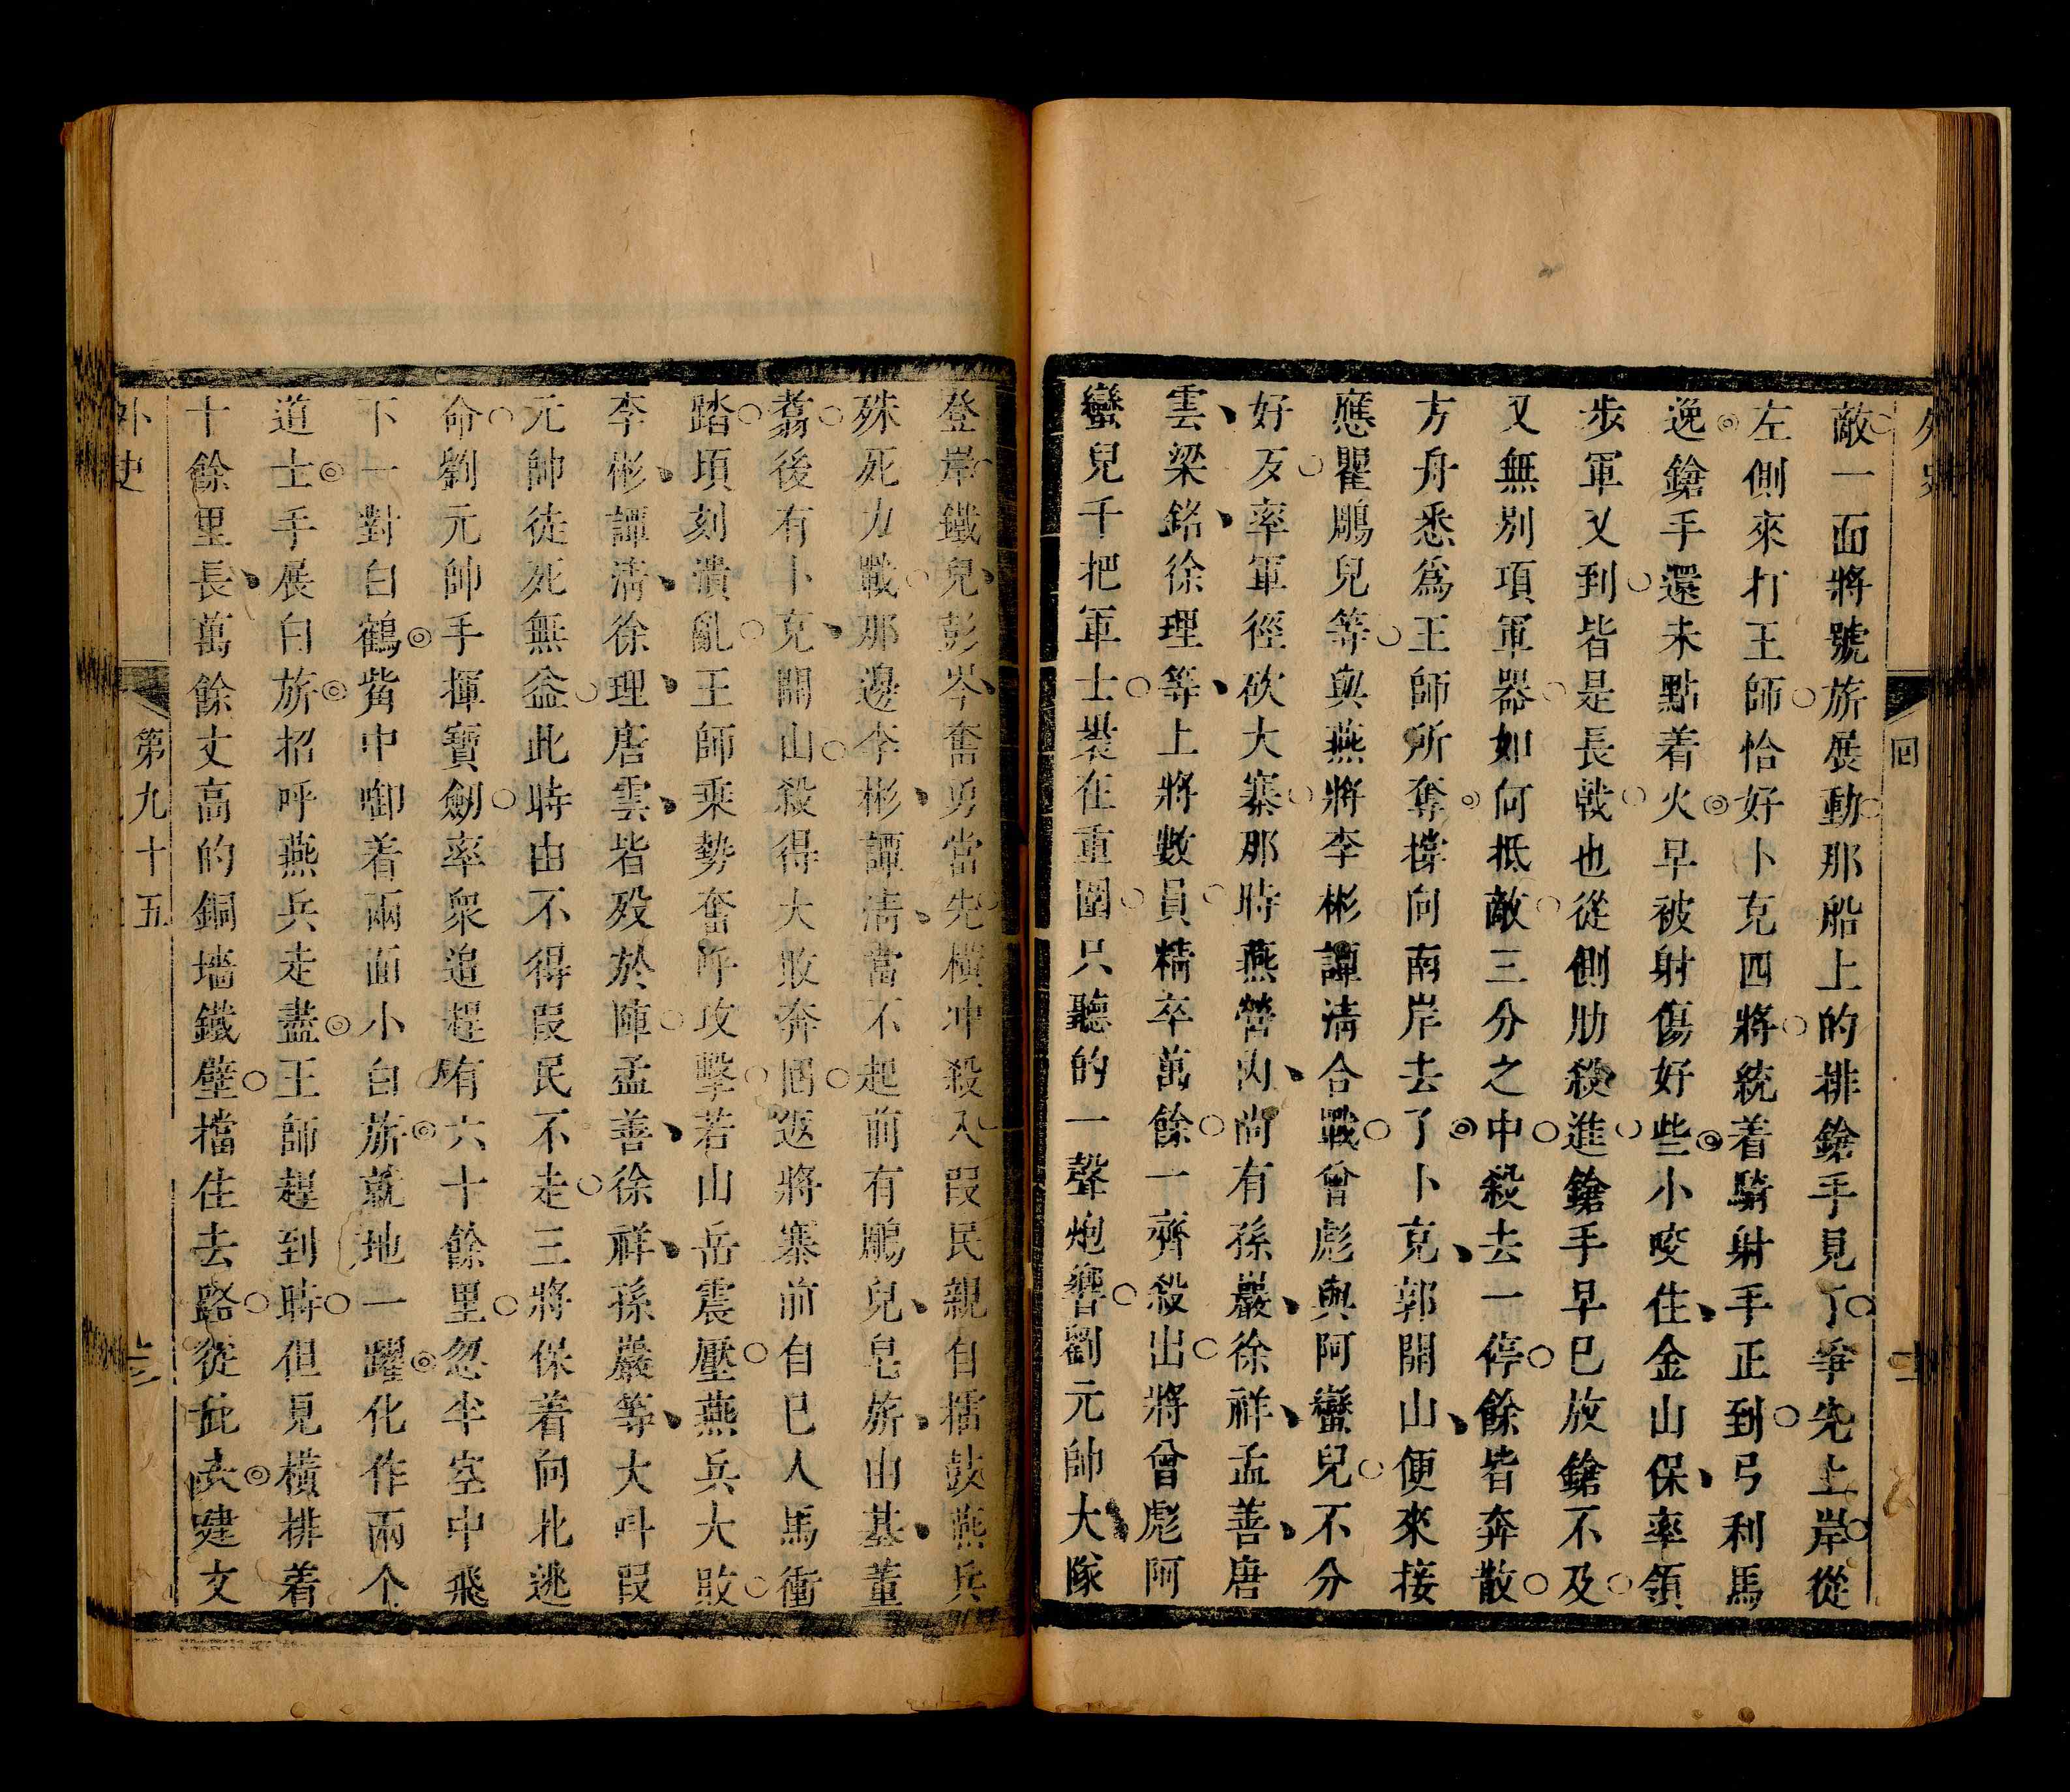 外史
回
敵一面將號旂展動那船上的排鎗手見了爭先上岸從
左側來打王師恰好卜克四將統着騎射手正到弓利馬
逸鎗手還未點着火早被射傷好些小咬住金山保率領
步軍又到皆是長戟也從側肋殺進鎗手早已放鎗不及
又無別項軍器如何抵敵三分之中殺去一停餘皆奔散
方舟悉爲王師所奪撐向南岸去了卜克郭開山便來接
應瞿鵰兒等與燕將李彬譚淸合戰曾彪與阿蠻兒不分
好反率軍徑砍大寨那時燕營內尚有孫巖徐祥孟善唐
雲梁銘徐理等上將數員精卒萬餘一齊殺出將曾彪阿
蠻兒千把軍士裝在重圍只聽的一聲炮響劉元帥大隊
登岸鐵兒彭岑奮勇當先橫冲殺入叚民親自擂鼓燕兵
殊死力戰那邊李彬譚淸當不起前有鵰兒皂旂山基董
翥後有卜克開山殺得大敗奔回逕將寨前自巳人馬衝
踏頃刻潰亂王師乘勢奮呼攻擊若山岳震壓燕兵大敗
李彬譚淸徐理唐雲皆殁於陣孟善徐祥孫巖等大呌叚
元帥徒死無益此時由不得叚民不走三將保着向北逃
命劉元帥手揮寶劍率衆追趕有六十餘里忽半空中飛
下一對白鶴觜中啣着兩面小白旂就地一躍化作兩个
道士手展白旂招呼燕兵走盡王師趕到時但見橫排着
十餘里長萬餘丈高的銅墻鐵壁擋住去路從此去建文
外史
第九十五